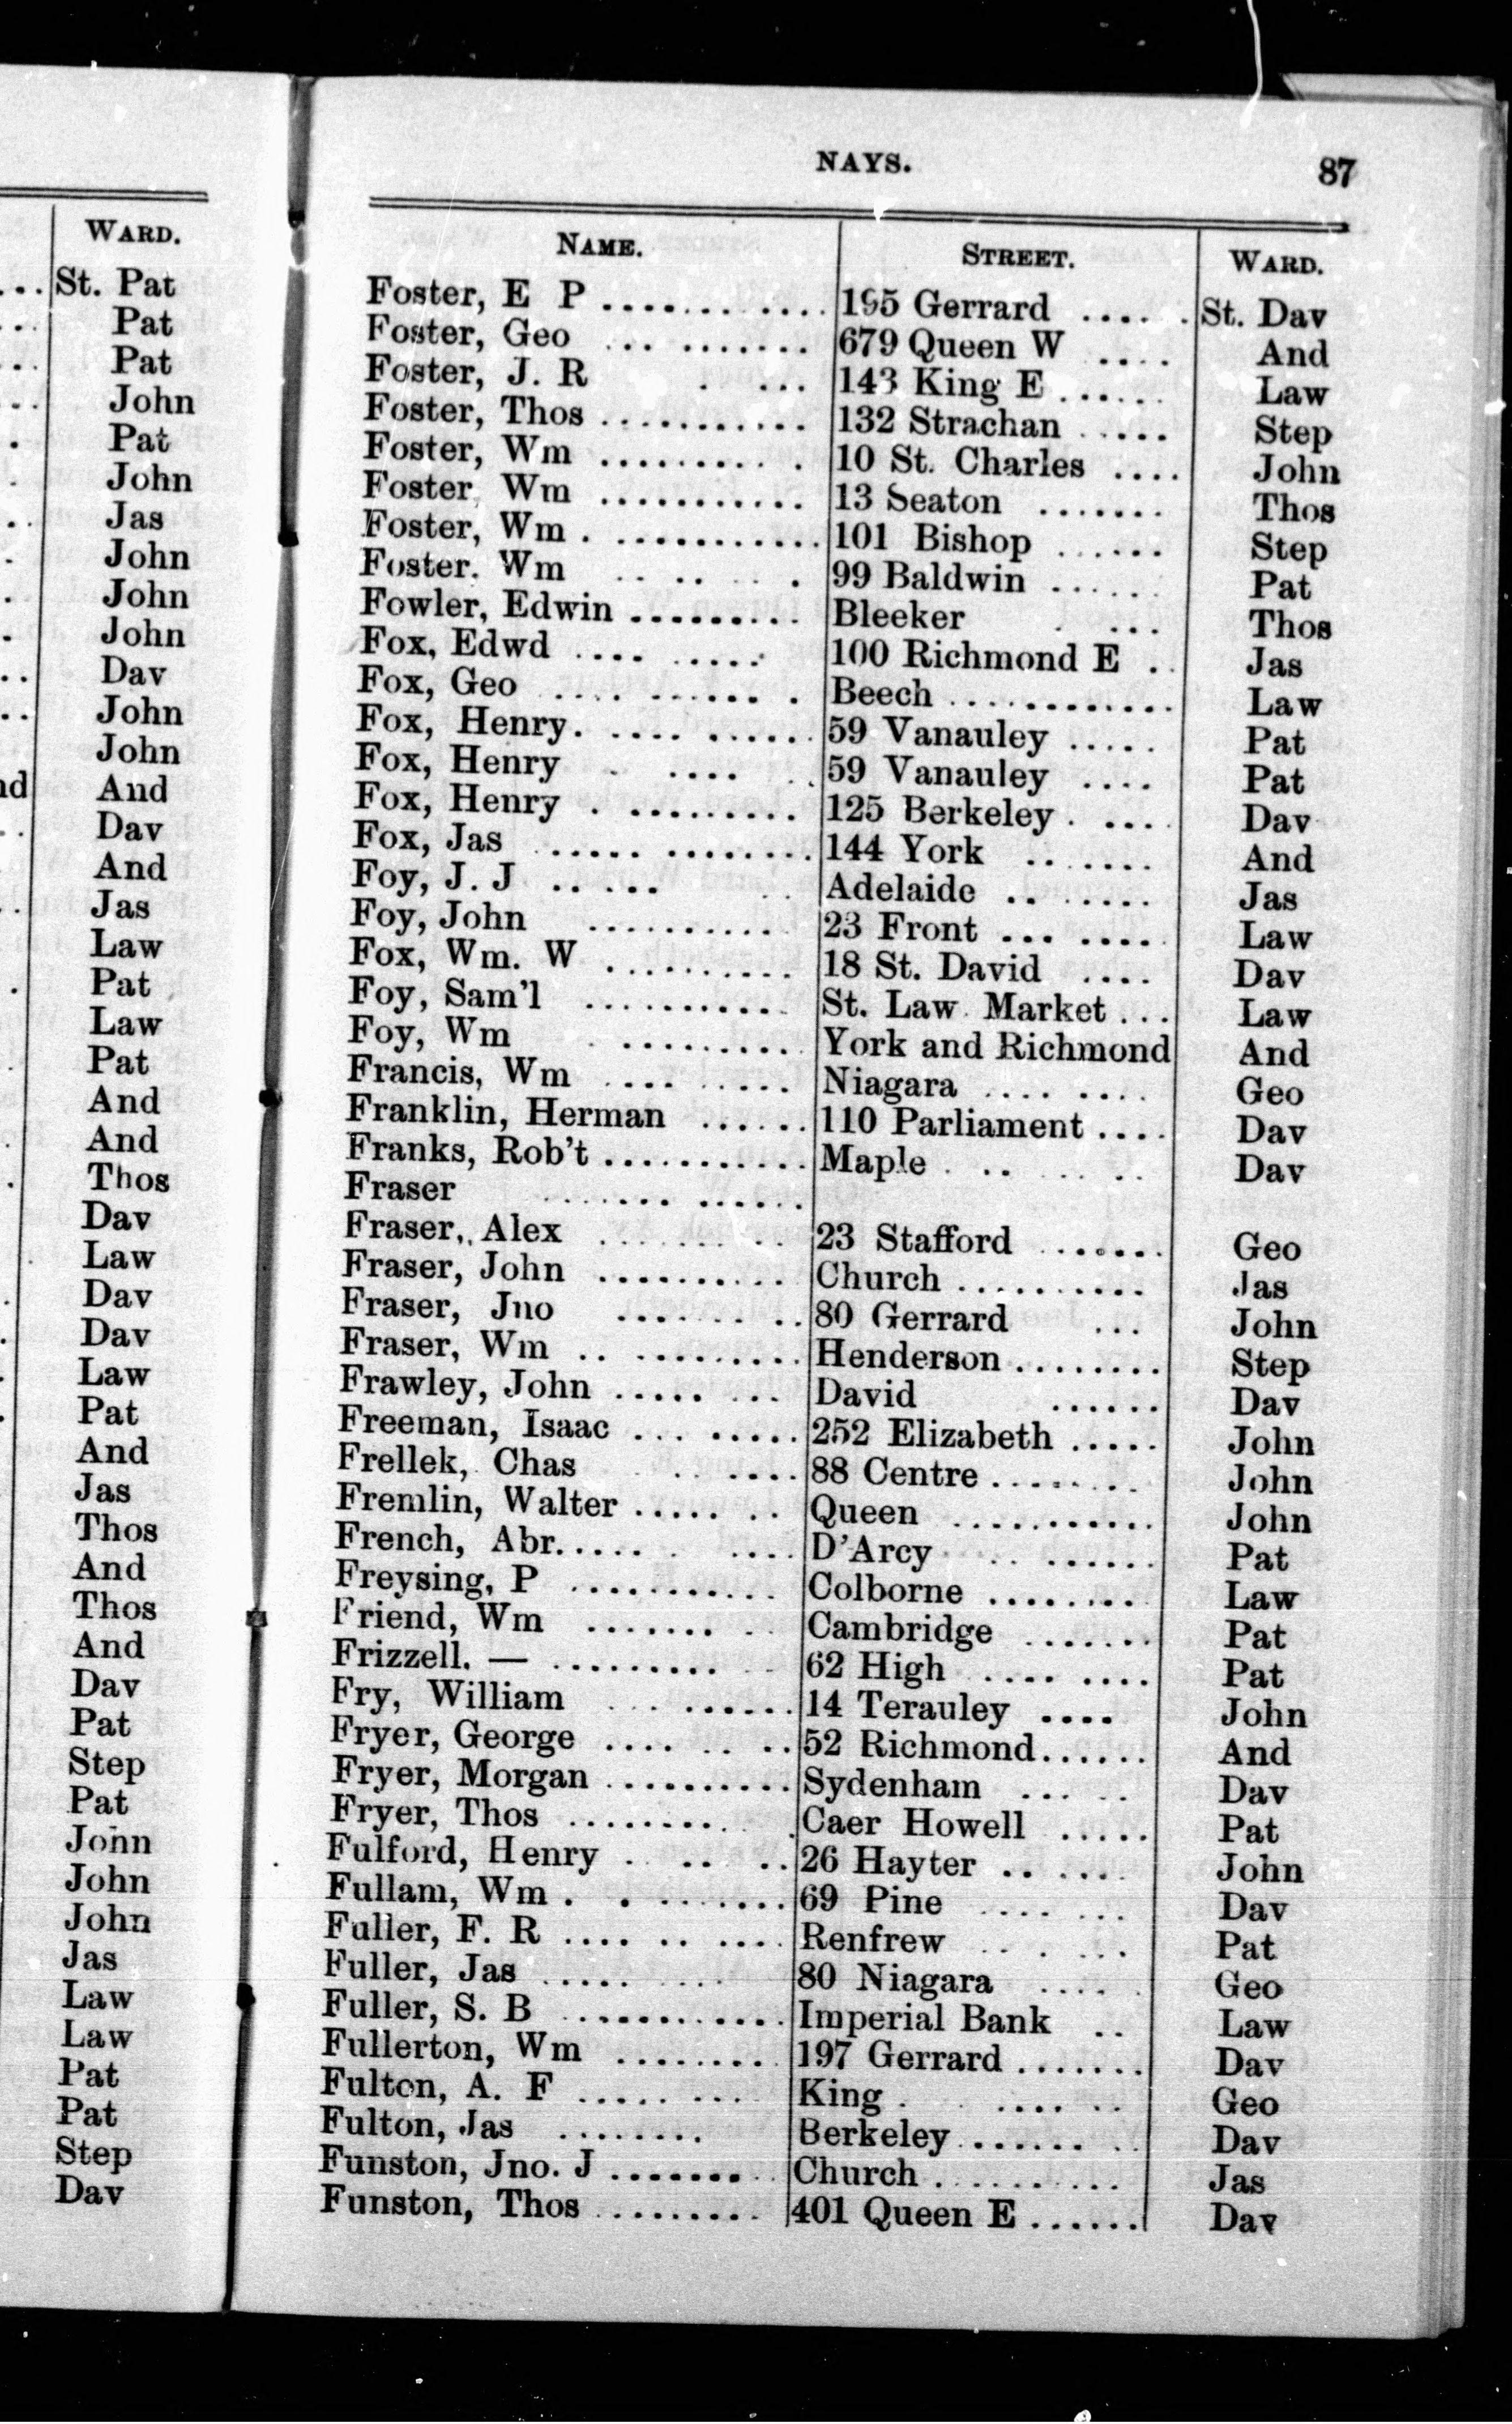 WARD.
St. Pat
Pat
Pat
John
Pat
John
Jas
John
John
John
Dav
John
John
nd And
Dav
And
Jas
Law
Pat
Law
Pat
And
And
Thos
Dav
Law
Dav
Dav
Law
Pat
And
Jas
Thos
And
Thos
And
Dav
Pat
Step
Pat
John
John
John
Jas
Law
Law
Pat
Pat
Step
Dav
NAYS. 87
NAME. STREET. WARD.
Foster, E P ........... 195 Gerrard ..... St. Dav
Foster, Geo ... ....... 679 Queen W .... And
Foster, J. R . ... 143 King E ...... Law
Foster, Thos ........... 132 Strachan ..... Step
Foster, Wm .......... 10 St. Charles .... John
Foster Wm ........... 13 Seaton ....... Thos
Foster, Wm . ........... 101 Bishop ...... Step
Foster. Wm .. .. . . . 99 Baldwin ...... Pat
Fowler, Edwin ......... Bleeker . ... Thos
Fox, Edwd .... ..... 100 Richmond E . Jas
Fox, Geo .... ...... . Beech ............ Law
Fox, Henry. .... ...... 59 Vanauley ..... Pat
Fox, Henry . .... . 59 Vanauley .... Pat
Fox, Henry . ......... 125 Berkeley . .... Dav
Fox, Jas ..... ........ 144 York ....... And
Foy, J. J ..... Adelaide .. ...... Jas
Foy, John ........... 23 Front ... .... Law
Fox, Wm. W .......... 18 St. David .... Dav
Foy, Sam'l ........... St. Law. Market ... Law
Foy, Wm . ......... York and Richmond And
Francis, Wm .... ..... Niagara .... .... Geo
Franklin, Herman ...... 110 Parliament .... Dav
Franks, Rob't ........... Maple . .. .. .. Dav
Fraser ...... ......
Fraser,. Alex .......... 23 Stafford ....... Geo
Fraser, John .......... Church .......... Jas
Fraser, Jno ....... .. 80 Gerrard ... John
Fraser, Wm .. ......... Henderson ........ Step
Frawley, John ..... ... David ...... Dav
Freeman, Isaac ... ..... 252 Elizabeth ..... John
Frellek, Chas .. .... 88 Centre ........ John
Fremlin, Walter ..... .. Queen ........... John
French, Abr..... . .... D'Arcy .. ...... Pat
Freysing, P ........... Colborne ........ Law
Friend, Wm ....... .. Cambridge ....... Pat
Frizzell. — ......... .. 62 High .... .... Pat
Fry, William . . ...... 14 Terauley .... John
Fryer, George .... .. .. 52 Richmond...... And
Fryer, Morgan .......... Sydenham ... .. Dav
Fryer, Thos ......... . Caer Howell ..... Pat
Fulford, Henry . .. .. 26 Hayter ...... John
Fullam, Wm . . ....... 69 Pine .... ... Dav
Fuller, F. R .... .. .... Renfrew .. . ... Pat
Fuller, Jas ..... ... 80 Niagara .... . Geo
Fuller, S. B ............ Imperial Bank .. Law
Fullerton, Wm ......... 197 Gerrard ....... Dav
Fulton, A. F ..... .... King . .... .. Geo
Fulton, Jas ........ Berkeley ...... .. Dav
Funston, Jno. J ....... .. Church .......... Jas
Funston, Thos ......... 401 Queen E ...... Dav